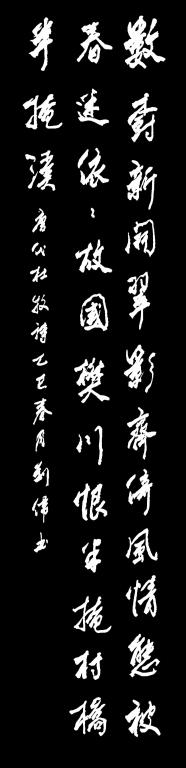 數樹新開翠影齊倚風情態被
春迷依〻故國樊川恨半掩村橋
半掩溪 唐代杜牧詩乙巳春月劉偉书